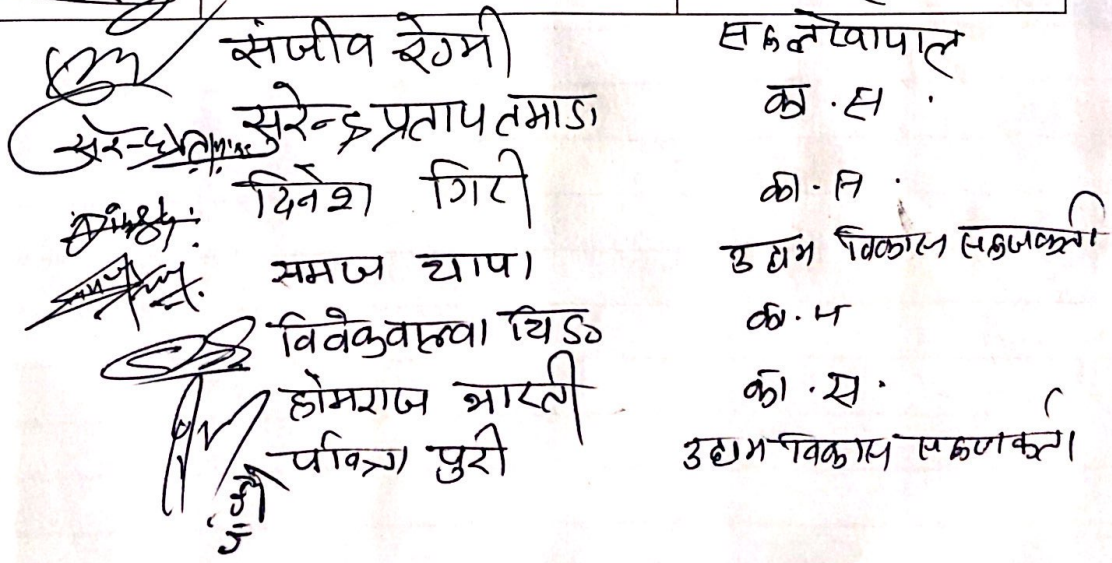 संजीव रेग्मी लेखापाल
सुरेन्द्र प्रताप तमाङ का. स.
दिनेश गिरी का. स.
समज थापा उद्यम विकास सहजकर्ता
विवेक का. स
होमराज भारती का. स.
पवित्रा पुरी उद्यम विकास सहजकर्ता